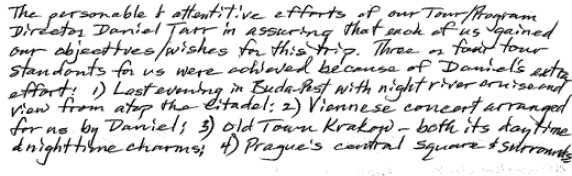 The personable & attentitive efforts of our Tour/Program
Director Daniel Tarr in assuring that each of us gained
our objectives/wishes for this trip. Three or four tour
standouts for us were achieved because of Daniel's extra
effort: 1) Last evening in Buda-Pest with night river cruise and
view from atop the Citadel; 2) Viennese concert arranged
for us by Daniel; 3) Old Town Krakow - both its daytime
& nighttime charms; 4) Prague's central square & surrounds